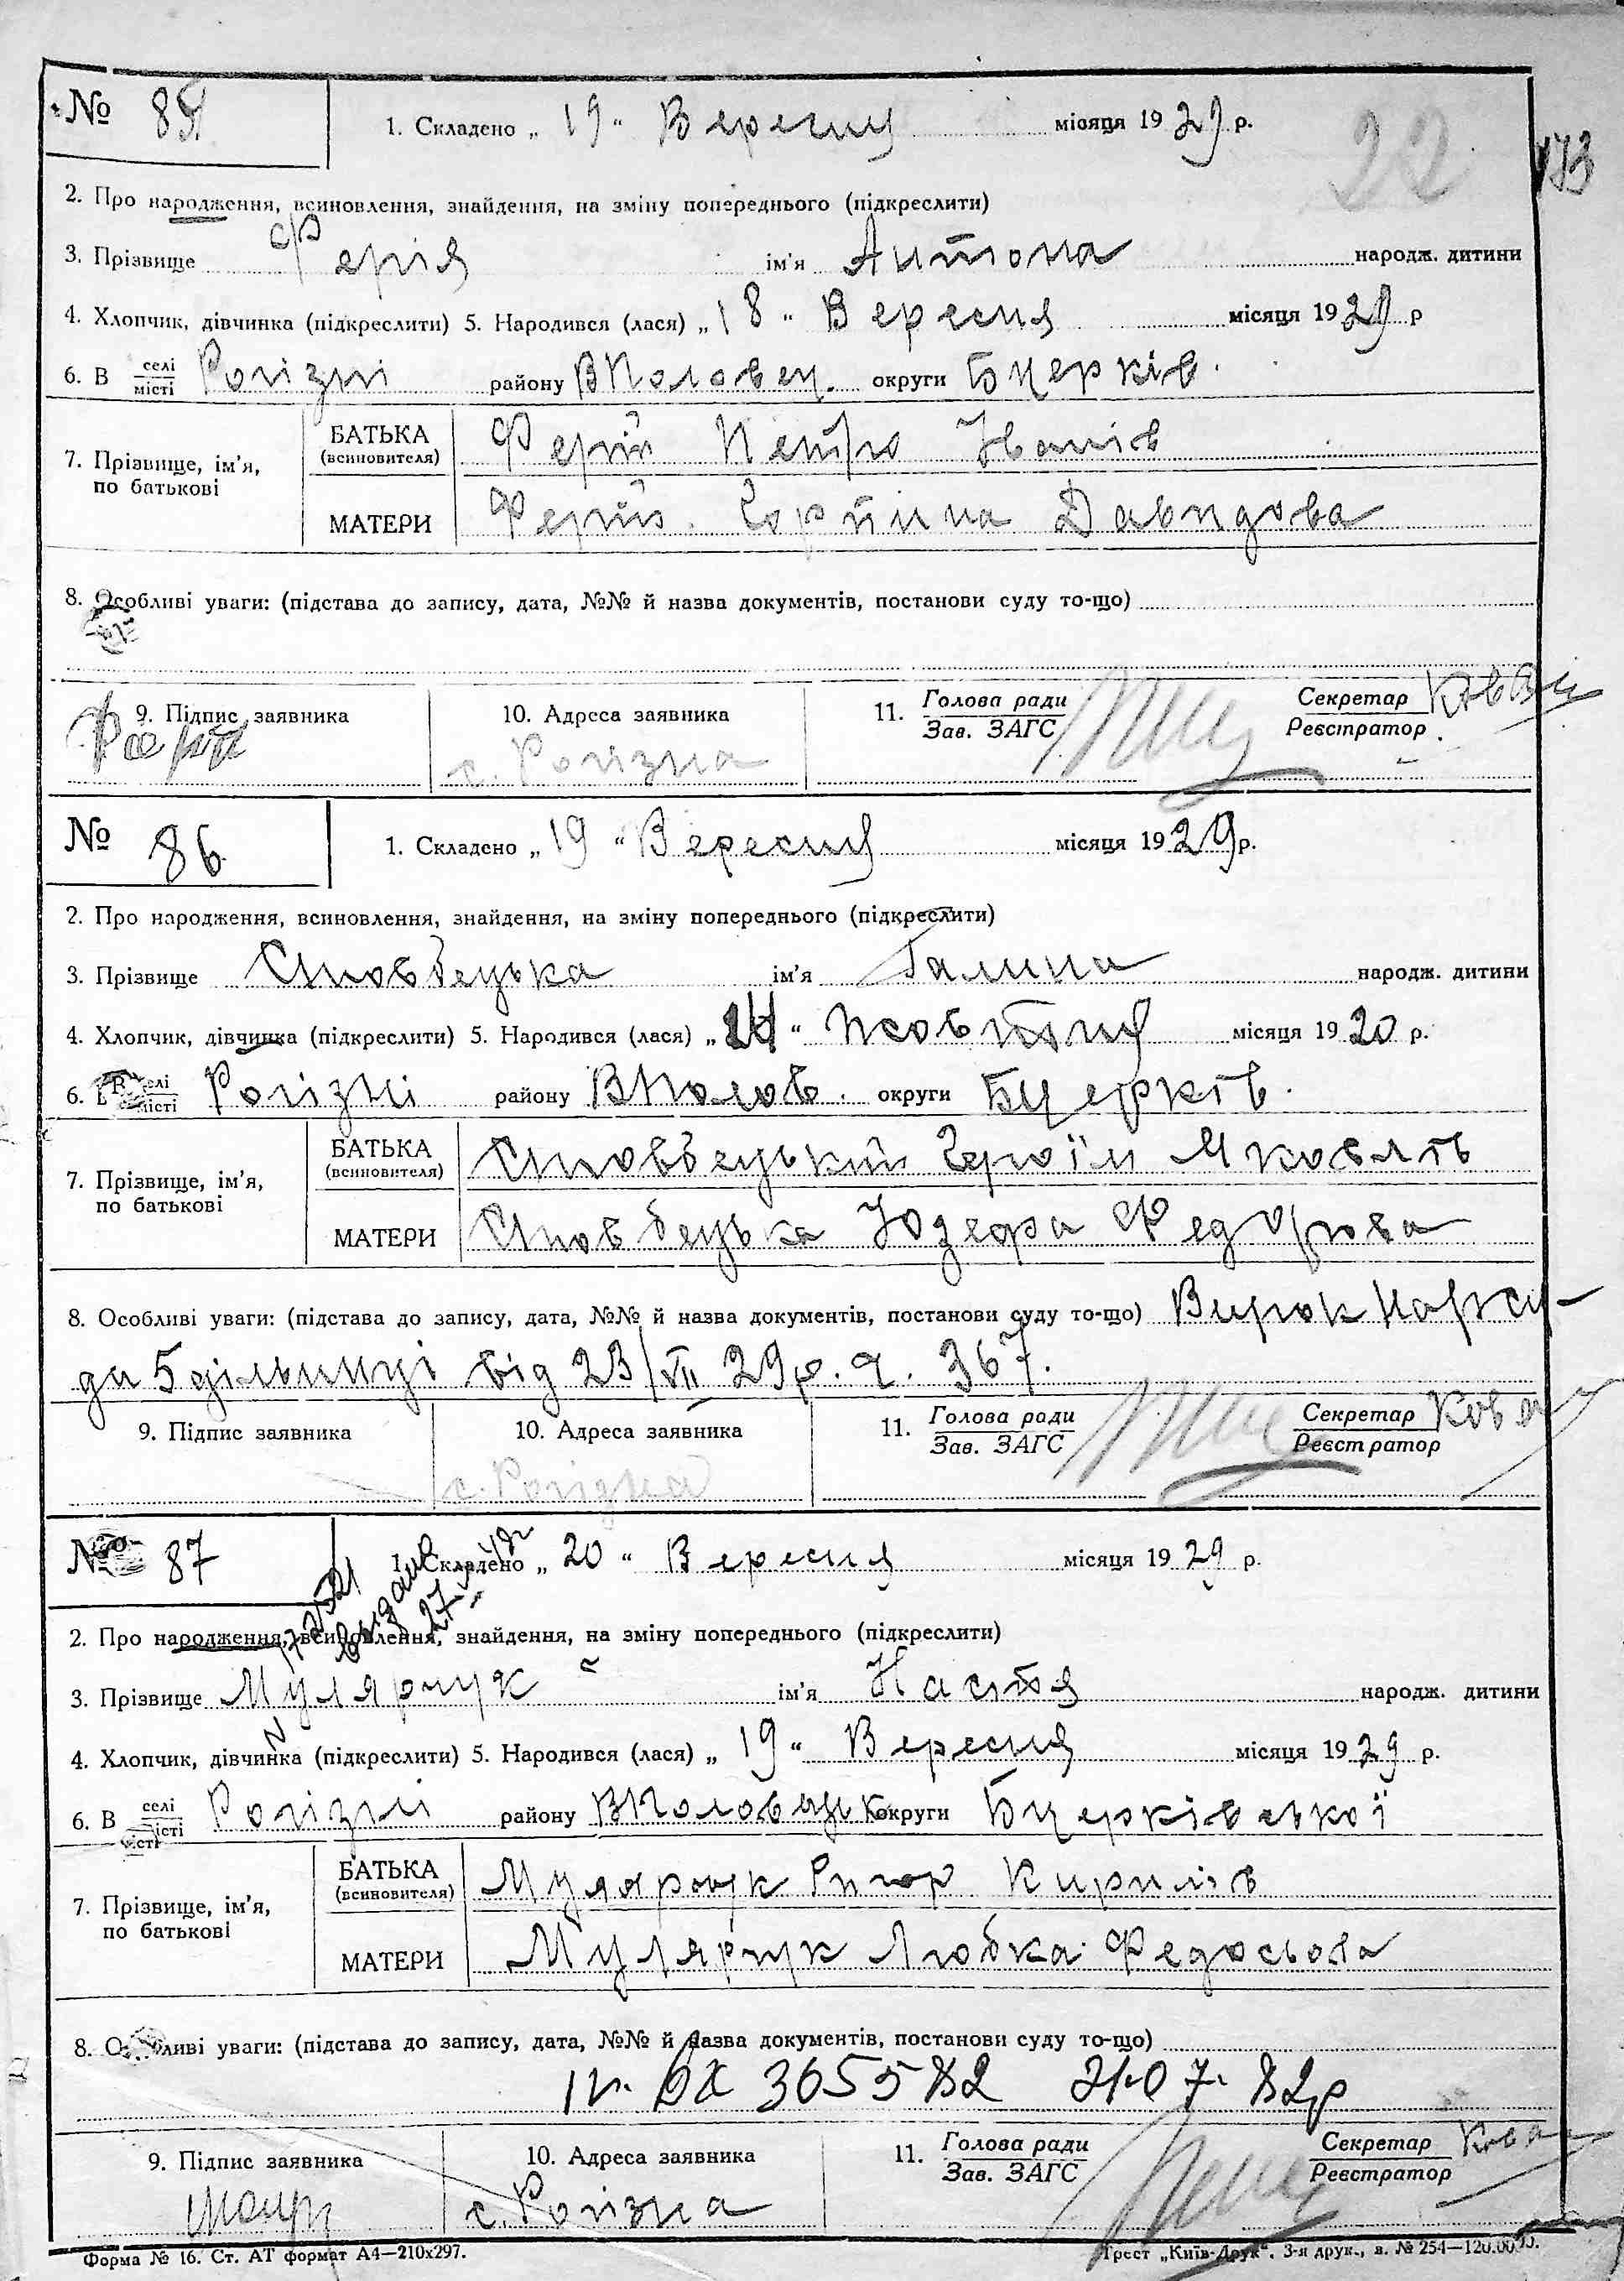 № 85 1. Складено „ 19 “ Вересня місяця 1929 р. 22 173
2. Про народження, всиновлення, знайдення, на зміну попереднього (підкреслити)
3. Прізвище Ферія ім'я Антона народж. дитини
4. Хлопчик, дівчинка (підкреслити) 5. Народився (лася) „ 18 “ Вересня місяця 1929 р
6. В селі/місті Рогізні району ВПоловец. округи БЦерків.
7. Прізвище, ім'я, по батькові
БАТЬКА (всиновителя) Ферій Петро Іванів
МАТЕРИ Ферій. Горпина Давидова
8. Особливі уваги: (підстава до запису, дата, №№ й назва документів, постанови суду то-що)
9. Підпис заявника 10. Адреса заявника 11. Голова ради/Зав. ЗАГС Секретар/Реєстратор
с. Рогізна
№ 86 1. Складено „ 19 “ Вересня місяця 1929 р.
2. Про народження, всиновлення, знайдення, на зміну попереднього (підкреслити)
3. Прізвище ім'я Галина народж. дитини
4. Хлопчик, дівчинка (підкреслити) 5. Народився (лася) „ “ Жовтня місяця 1920 р.
6. В селі/місті Рогізні району ВПолов. округи БЦерків.
7. Прізвище, ім'я, по батькові
БАТЬКА (всиновителя) Яковлів
МАТЕРИ Юзефа Федорова
8. Особливі уваги: (підстава до запису, дата, №№ й назва документів, постанови суду то-що) Вирок Нарсу-
да 5 дільниці від 23/VII 29р. ч. 367.
9. Підпис заявника 10. Адреса заявника 11. Голова ради/Зав. ЗАГС Секретар/Реєстратор
с. Рогізна
№ 87 1. Складено „ 20 “ Вересня місяця 1929 р.
2. Про народження, всиновлення, знайдення, на зміну попереднього (підкреслити)
3. Прізвище Мулярчук ім'я Настя народж. дитини
4. Хлопчик, дівчинка (підкреслити) 5. Народився (лася) „ 19 “ Вересня місяця 1929 р.
6. В селі/місті Рогізні району ВПоловецьк округи БЦерківської
7. Прізвище, ім'я, по батькові
БАТЬКА (всиновителя) Мулярчук Григор Кирилів
МАТЕРИ Мулярчук Любка Федосьова
8. Особливі уваги: (підстава до запису, дата, №№ й назва документів, постанови суду то-що)
365582 82р
9. Підпис заявника 10. Адреса заявника 11. Голова ради/Зав. ЗАГС Секретар/Реєстратор
с. Рогізна
Форма № 16. Ст. АТ формат А4—210х297. Трест „Київ-Друк“. 3-я друк., з. № 254—120.000.